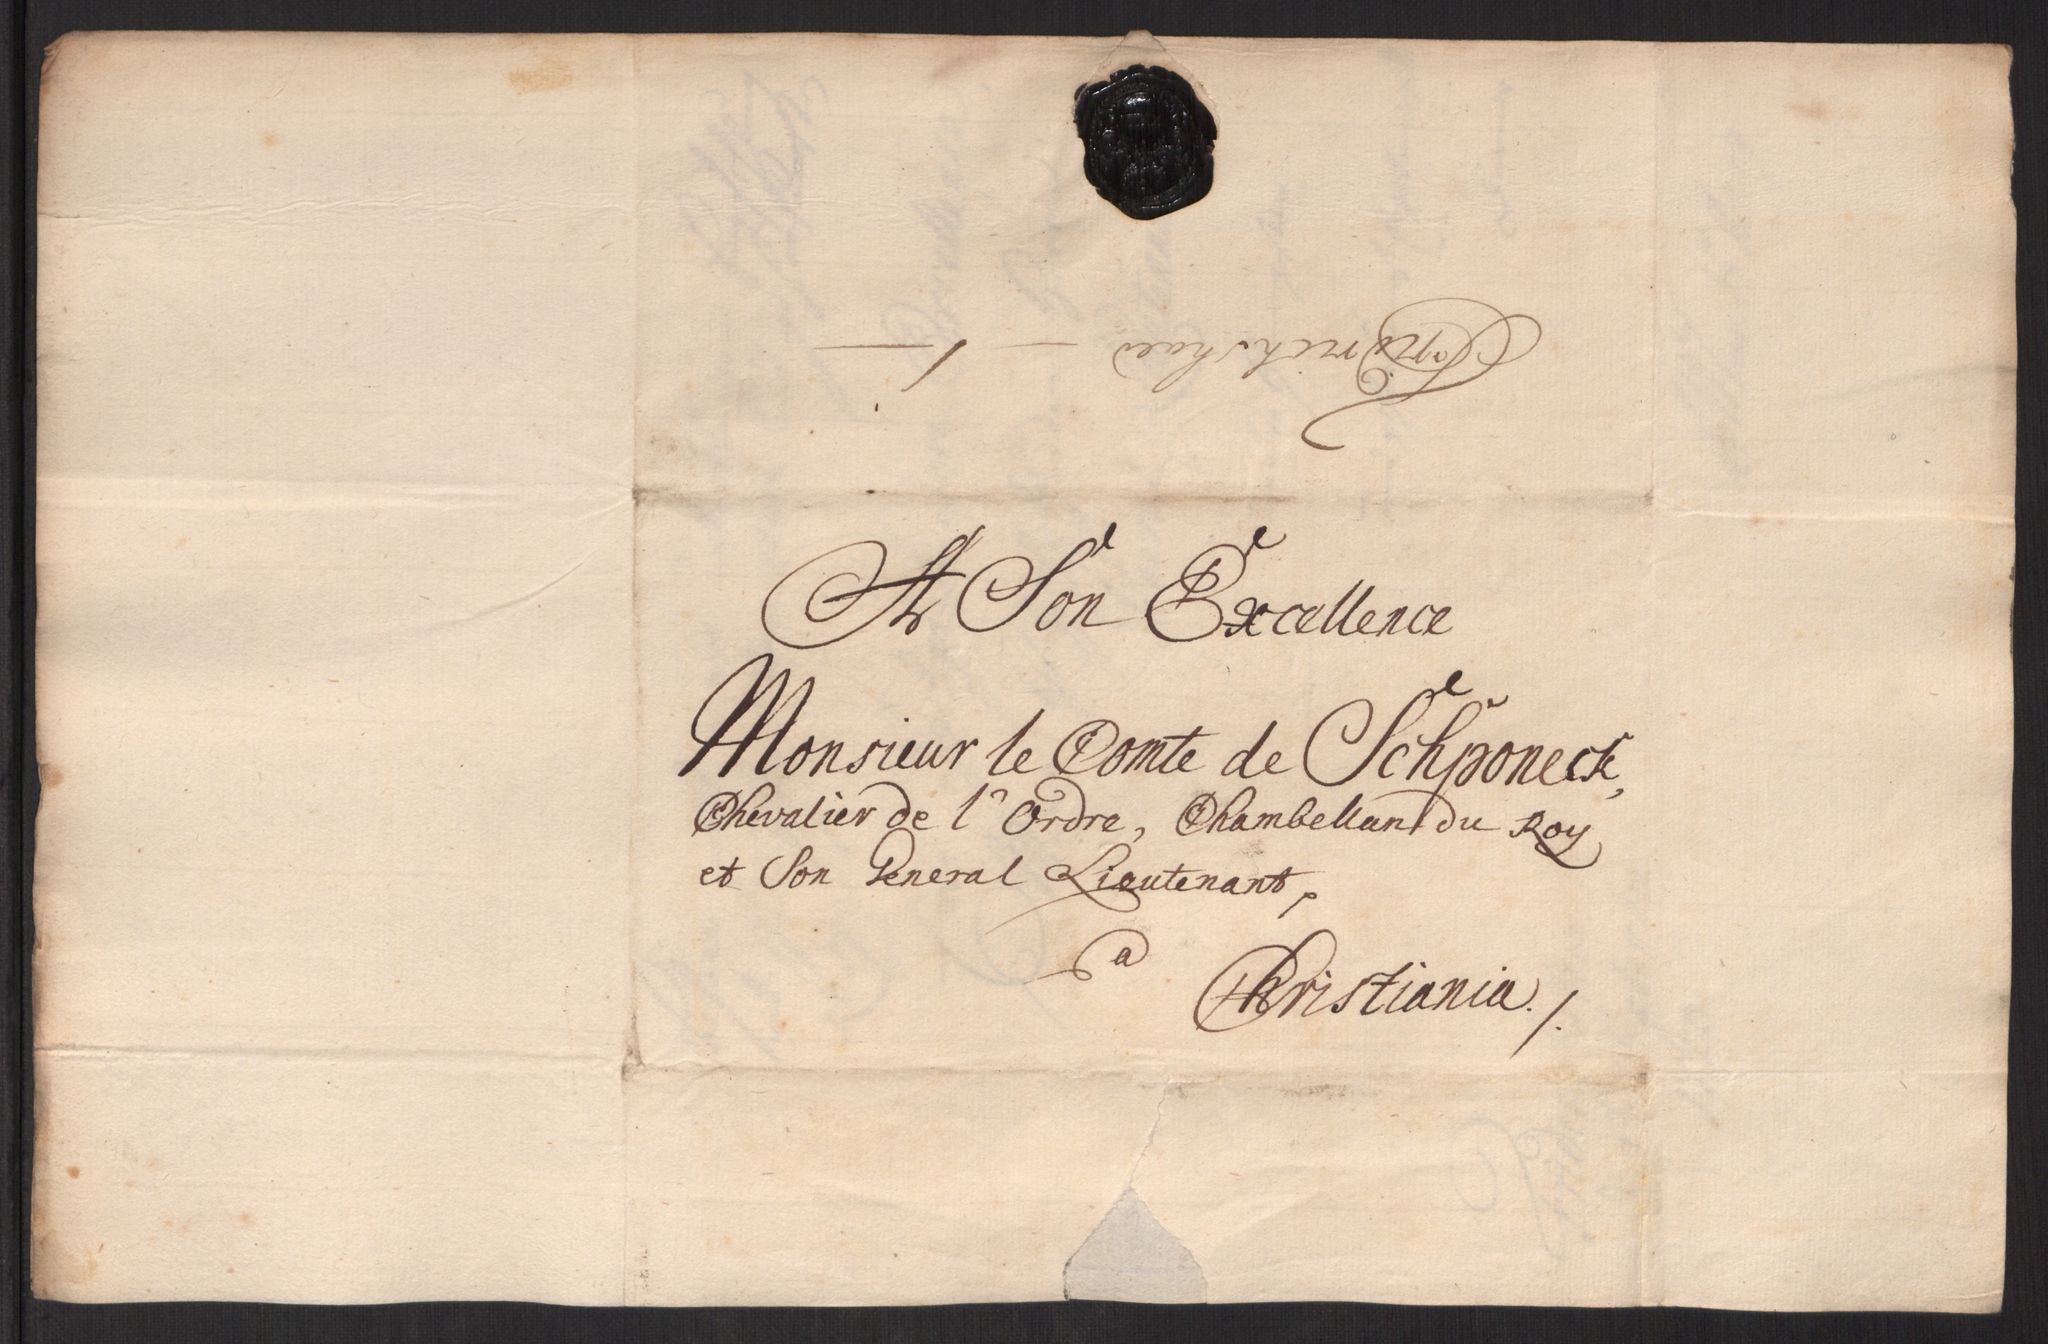 A Son Excellence
Monsieur le Comte de Schponeck,
Chevalier de l'Ordre, Chambellan du Roy
et Son General Lieutenant,
a
Christiania ./.